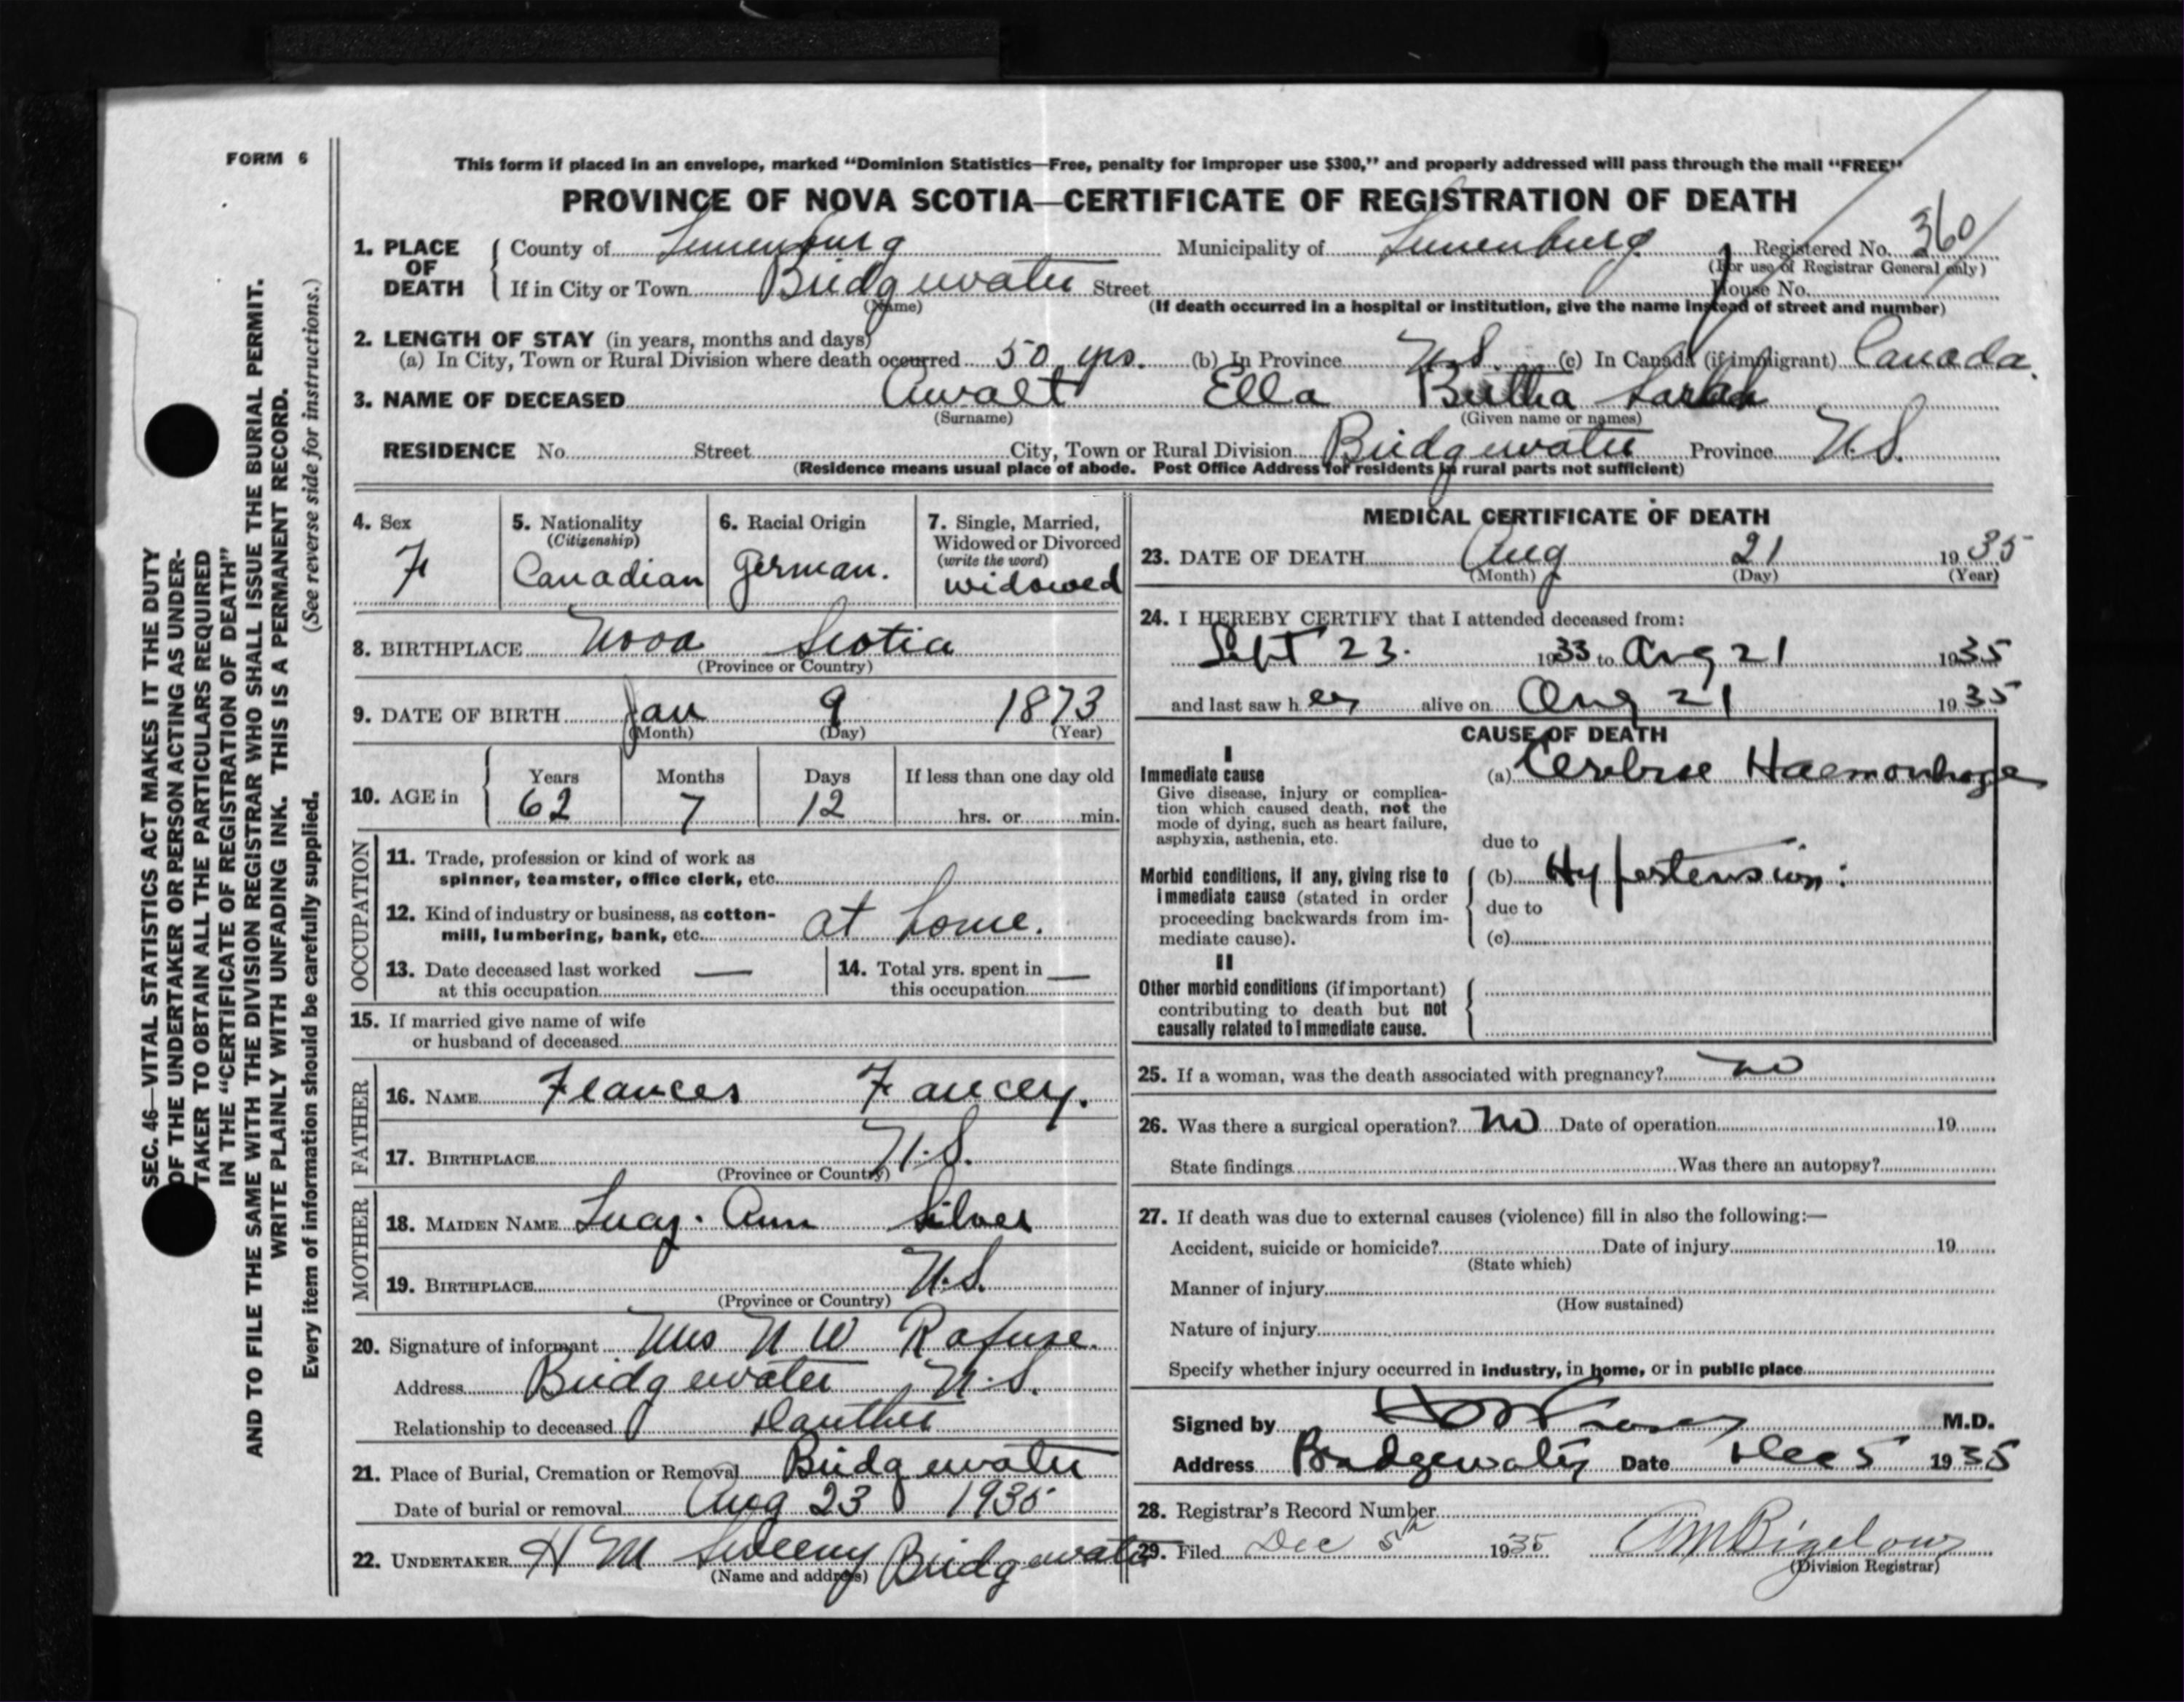 FORM 6
This form if placed in an envelope, marked “Dominion Statistics—Free, penalty for improper use $300,” and properly addressed will pass through the mail “FREE”
PROVINCE OF NOVA SCOTIA—CERTIFICATE OF REGISTRATION OF DEATH
1. PLACE OF DEATH { County of Lunenburg Municipality of Lunenburg Registered No. 360
(For use of Registrar General only)
If in City or Town Bridgewater Street House No.
(Name) (If death occurred in a hospital or institution, give the name instead of street and number)
2. LENGTH OF STAY (in years, months and days)
(a) In City, Town or Rural Division where death occurred 50 yrs. (b) In Province N.S. (c) In Canada (if immigrant) Canada.
3. NAME OF DECEASED Awalt Ella Bertha Sarah
(Surname) (Given name or names)
RESIDENCE No. Street City, Town or Rural Division Bridgewater Province N.S.
(Residence means usual place of abode. Post Office Address for residents in rural parts not sufficient)
4. Sex
F
5. Nationality
(Citizenship)
Canadian
6. Racial Origin
German.
7. Single, Married,
Widowed or Divorced
(write the word)
widowed
8. BIRTHPLACE Nova Scotia
(Province or Country)
9. DATE OF BIRTH Jan 9 1873
(Month) (Day) (Year)
10. AGE in { Years Months Days If less than one day old
62 7 12 hrs. or min.
OCCUPATION
11. Trade, profession or kind of work as
spinner, teamster, office clerk, etc.
12. Kind of industry or business, as cotton-
mill, lumbering, bank, etc. at home.
13. Date deceased last worked —
at this occupation
14. Total yrs. spent in —
this occupation
15. If married give name of wife
or husband of deceased
FATHER
16. NAME Frances Fancey.
17. BIRTHPLACE N.S.
(Province or Country)
MOTHER
18. MAIDEN NAME Lucy. Ann Silver
19. BIRTHPLACE N.S.
(Province or Country)
20. Signature of informant Mrs N W Rafuse.
Address Bridgewater, N.S.
Relationship to deceased Dauther
21. Place of Burial, Cremation or Removal Bridgewater
Date of burial or removal Aug 23 1935
22. UNDERTAKER H M Sweeny Bridgewater
(Name and address)
MEDICAL CERTIFICATE OF DEATH
23. DATE OF DEATH Aug 21 1935
(Month) (Day) (Year)
24. I HEREBY CERTIFY that I attended deceased from:
Sept 23. 1933 to Aug 21 1935
and last saw h er alive on Aug 21 1935
CAUSE OF DEATH
I
Immediate cause (a) Cerebral Haemorrhage
Give disease, injury or complica-
tion which caused death, not the
mode of dying, such as heart failure,
asphyxia, asthenia, etc.
due to
Morbid conditions, if any, giving rise to
immediate cause (stated in order
proceeding backwards from im-
mediate cause).
(b) Hypertension.
due to
(c)
II
Other morbid conditions (if important)
contributing to death but not
causally related to immediate cause.
25. If a woman, was the death associated with pregnancy? no
26. Was there a surgical operation? No Date of operation 19
State findings Was there an autopsy?
27. If death was due to external causes (violence) fill in also the following:—
Accident, suicide or homicide? Date of injury 19
(State which)
Manner of injury
(How sustained)
Nature of injury
Specify whether injury occurred in industry, in home, or in public place
Signed by M.D.
Address Bridgewater Date Dec 5 1935
28. Registrar's Record Number
29. Filed Dec 5th 1935 A M Bigelow
(Division Registrar)
SEC. 46—VITAL STATISTICS ACT MAKES IT THE DUTY
OF THE UNDERTAKER OR PERSON ACTING AS UNDER-
TAKER TO OBTAIN ALL THE PARTICULARS REQUIRED
IN THE “CERTIFICATE OF REGISTRATION OF DEATH”
AND TO FILE THE SAME WITH THE DIVISION REGISTRAR WHO SHALL ISSUE THE BURIAL PERMIT.
WRITE PLAINLY WITH UNFADING INK. THIS IS A PERMANENT RECORD.
Every item of information should be carefully supplied. (See reverse side for instructions.)